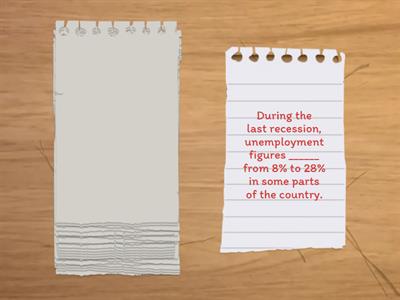 During the
last recession,
unemployment
figures ______
from 8% to 28%
in some parts
of the country.